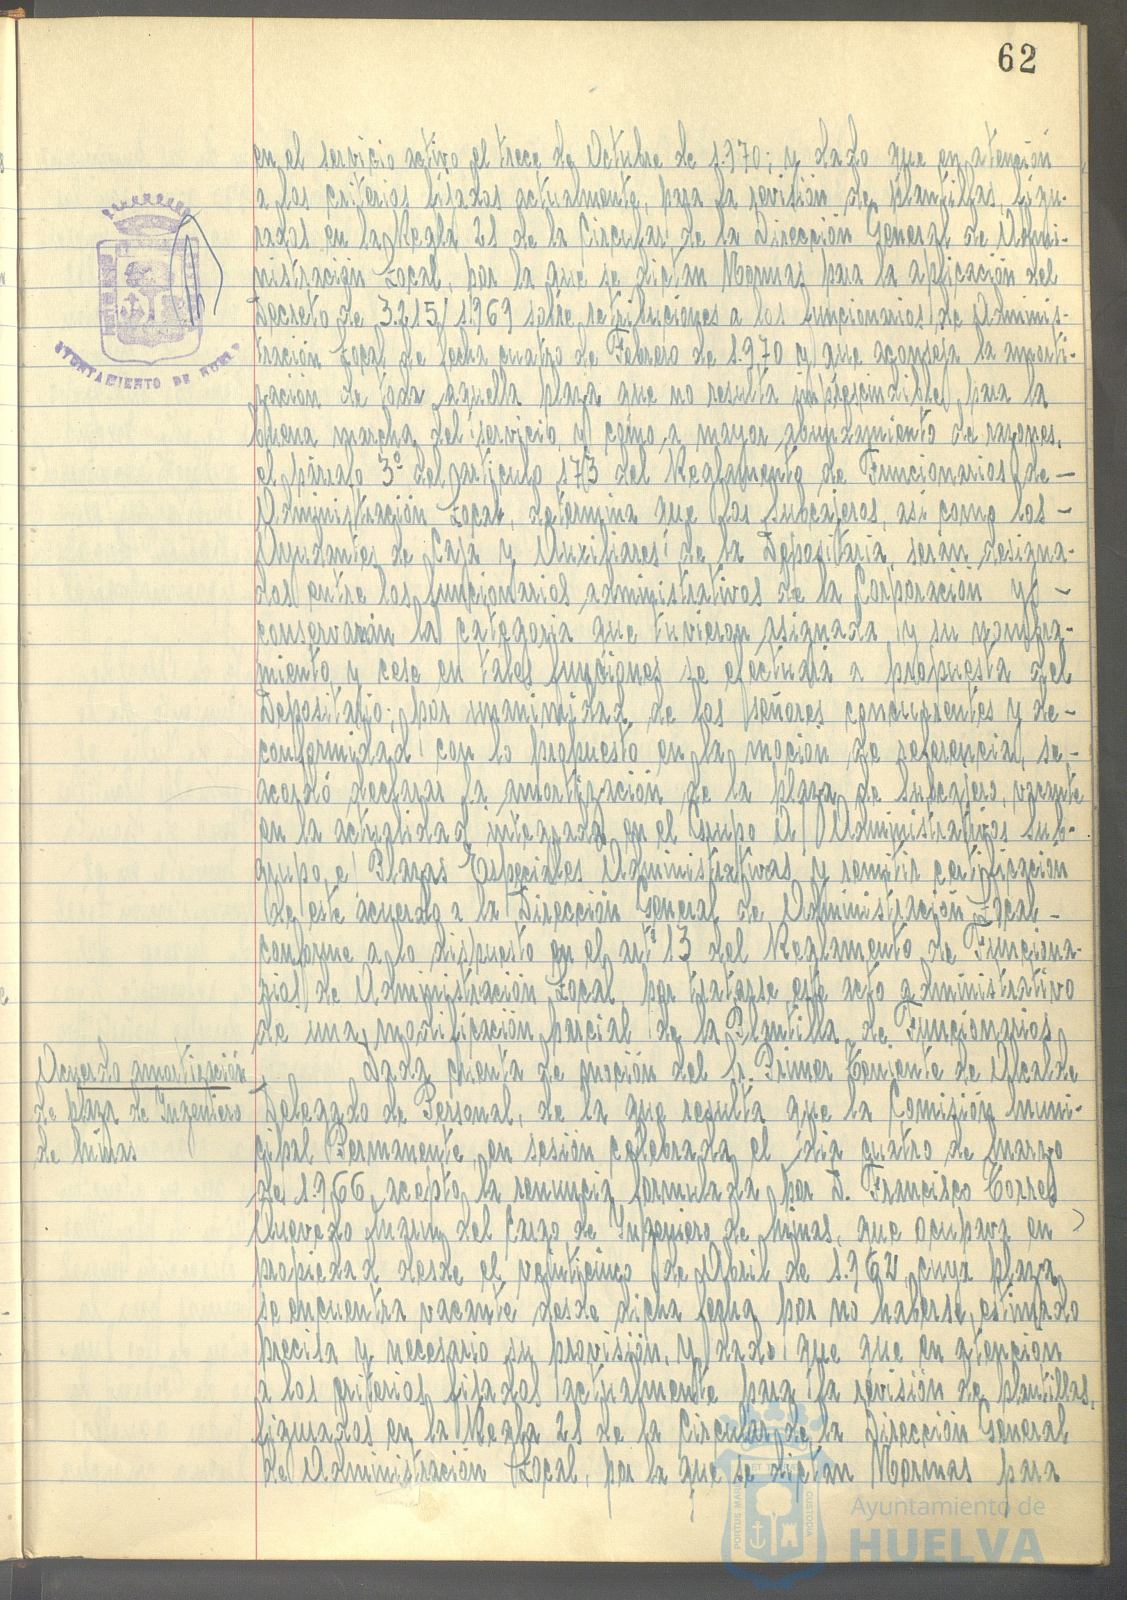 62
en el servicio activo el trece de Octubre de 1.970; y dado que en atención
a los criterios fijados actualmente, para la revisión de plantillas, figu-
rados en la Regla 21 de la Circular de la Dirección General de Admi-
nistración Local, por la que se dictan Normas para la aplicación del
Decreto de 3.215/1.969 sobre retribuciones a los funcionarios de Adminis-
tración Local de fecha cuatro de Febrero de 1.970 y que aconseja la amorti-
zación de toda aquella plaza que no resulta imprescindible para la
buena marcha del servicio y como a mayor abundamiento de razones,
el párrafo 3º del artículo 173 del Reglamento de Funcionarios de -
Administración Local, determina que los Subcajeros, así como los -
Ayudantes de Caja y Auxiliares de la Depositaria, serán designa-
dos entre los funcionarios administrativos de la Corporación y -
conservarán la categoria que tuvieron asignada, y su nombra-
miento y cese en tales funciones se efectuará a propuesta del
Depositario; por unanimidad de los señores concurrentes y de -
conformidad con lo propuesto en la moción de referencia, se -
acordó declarar la amortización de la plaza de Subcajero, vacante
en la actualidad integrada en el Grupo A) Administrativos Sub-
grupo e) Plazas Especiales Administrativas y remitir certificación
de este acuerdo a la Dirección General de Administración Local -
conforme a lo dispuesto en el artº 13 del Reglamento de Funciona-
rios de Administración Local, por tratarse este acto administrativo
de una modificación parcial de la Plantilla de Funcionarios
Acuerdo amortización
de plaza de Ingeniero
de Minas
Dada cuenta de moción del Sr. Primer Teniente de Alcalde
Delegado de Personal, de la que resulta que la Comisión Muni-
cipal Permanente, en sesión celebrada el día cuatro de Marzo
de 1.966, acepto la renuncia formulada por D. Francisco Torres
Quevedo Marin del Cargo de Ingeniero de Minas, que ocupava en
propiedad desde el veinticinco de Abril de 1.962, cuya plaza
se encuentra vacante desde dicha fecha por no haberse estimado
precisa y necesario su provisión, y dado que que en atención
a los criterios fijados actualmente para la revisión de plantillas,
figurados en la Regla 21 de la Circular de la Dirección General
de Administración Local, por la que se dictan Normas para
AYUNTAMIENTO DE HUELVA
PORTUS MARIS ET TERRAE CUSTODIA
Ayuntamiento de
HUELVA